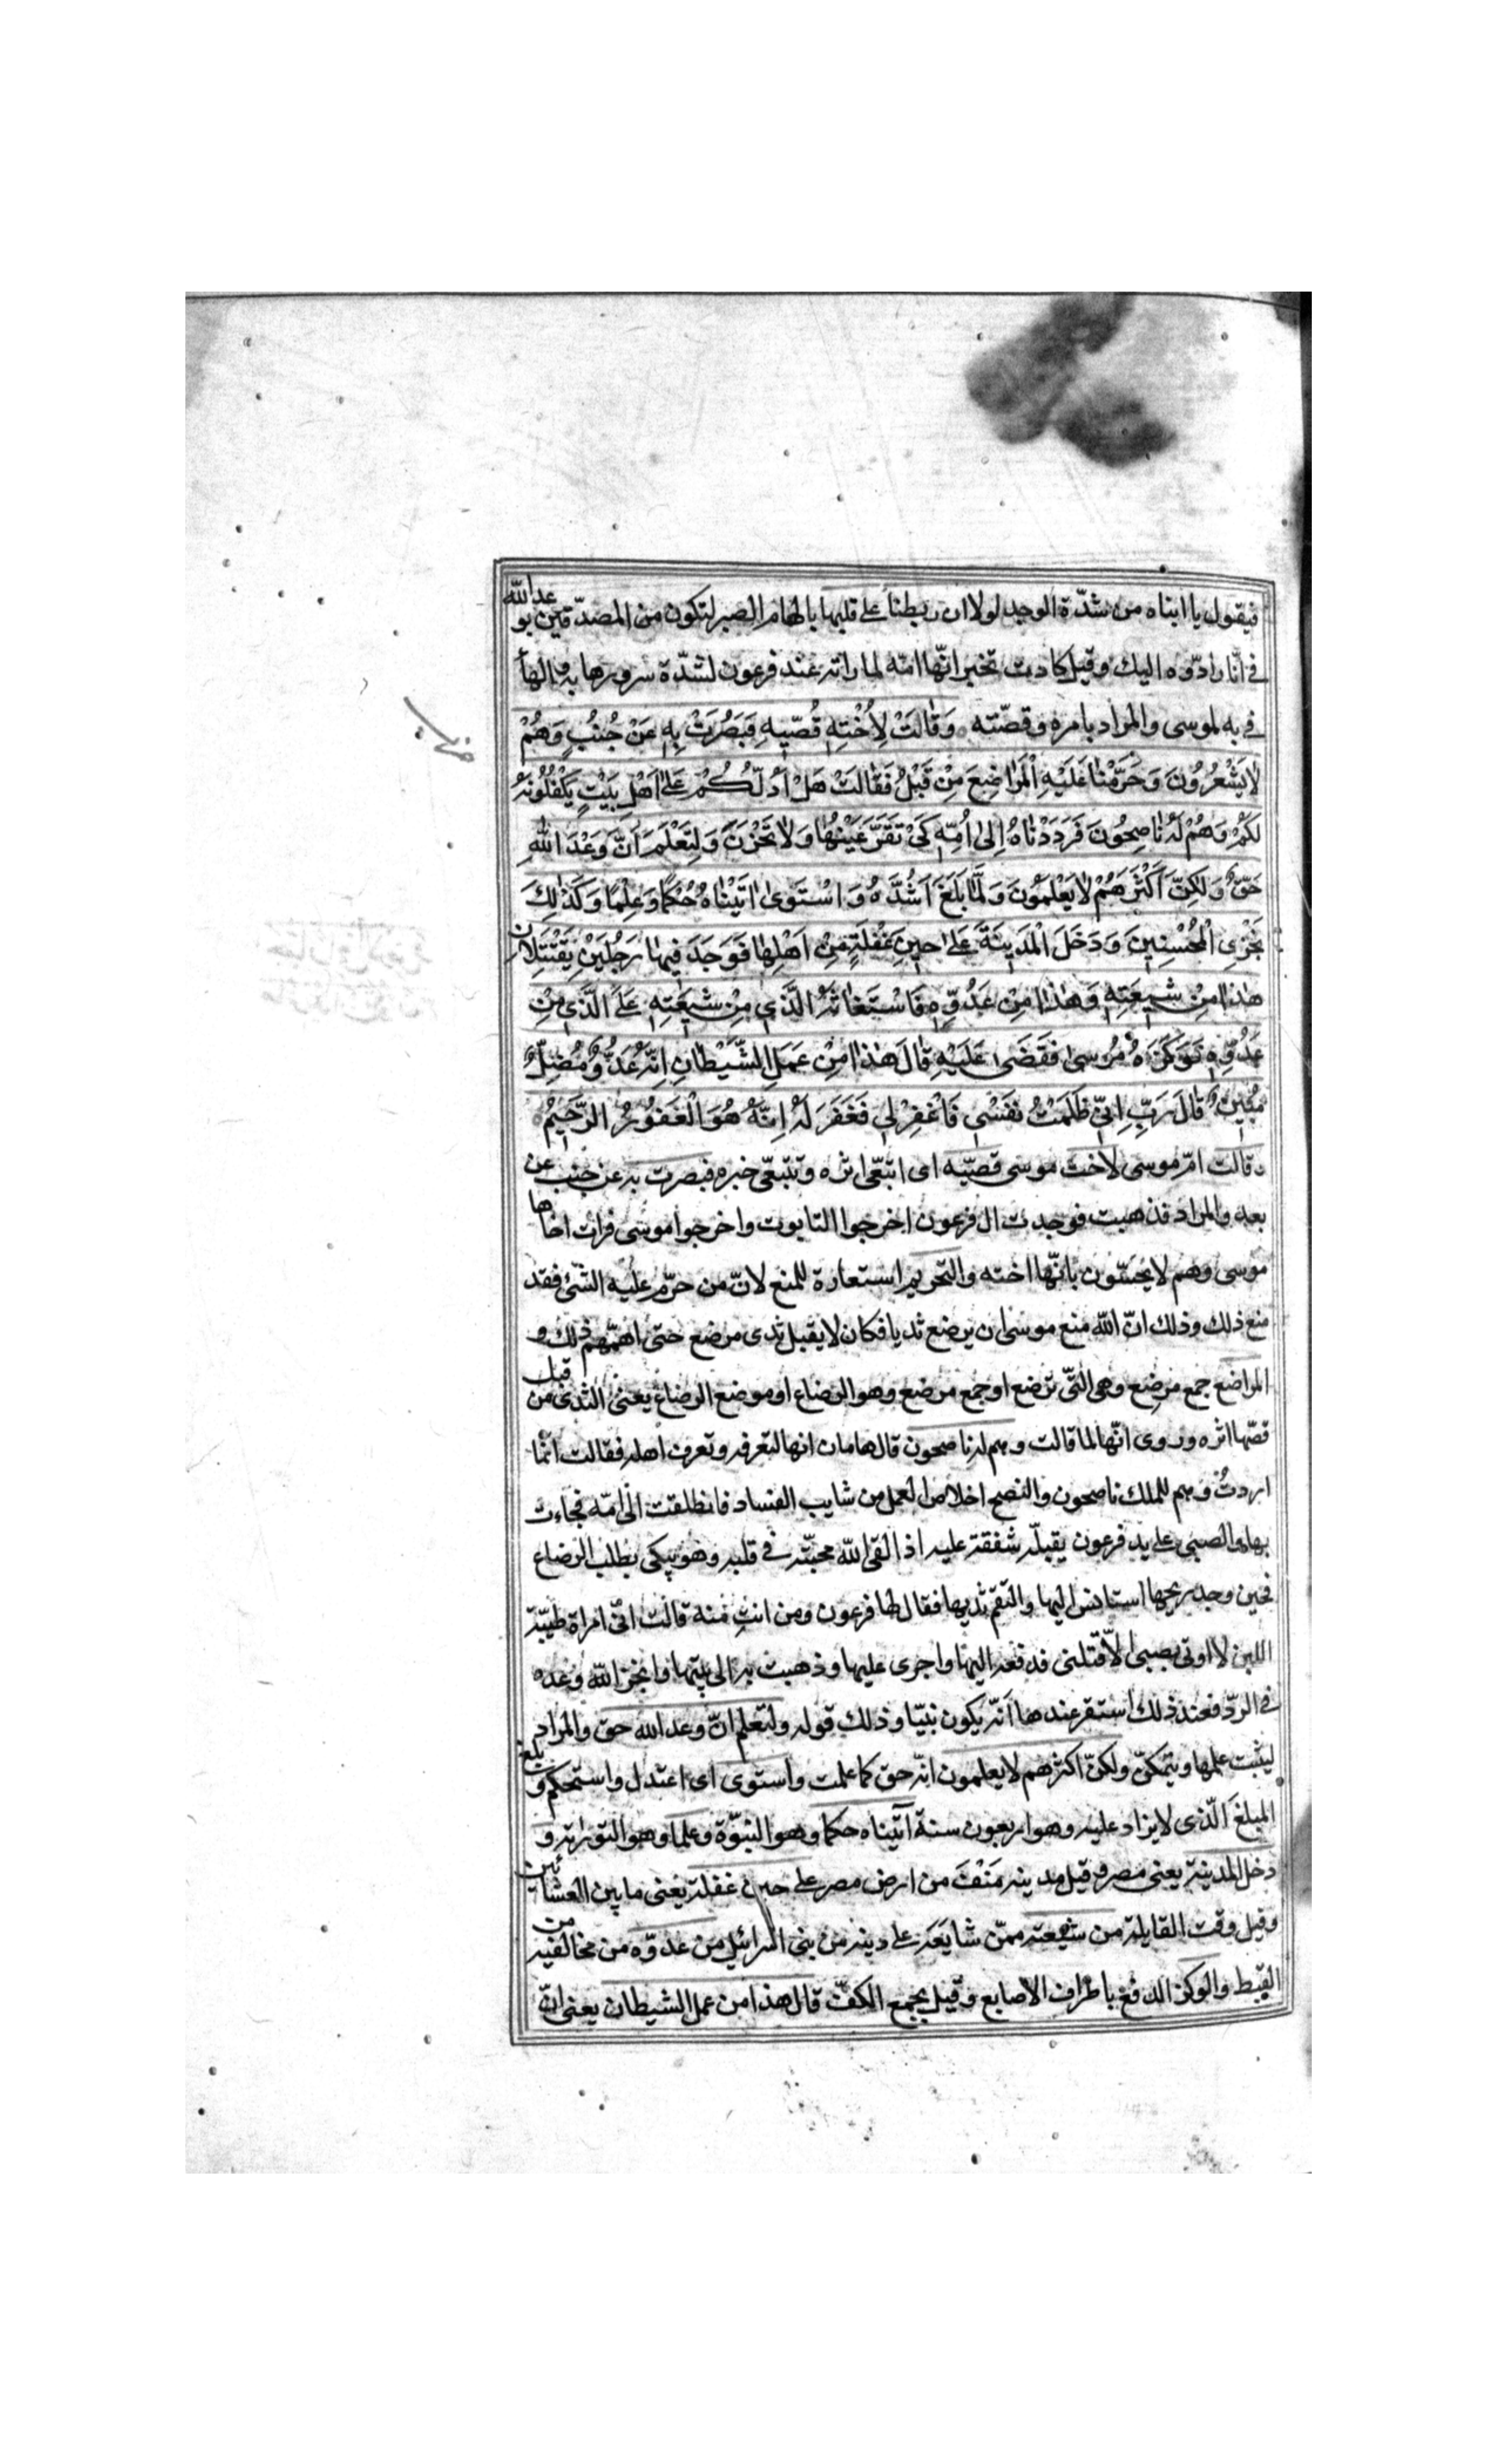 فيقول يا ابناه من شدّة الوجد لولا ان ربطنا على قلبها بالهام الصبر لتكون من المصدّقين بوعد الله
فى انّا رادّوه اليك وقيل كادت تخبر انّها امّه لما راته عند فرعون لشدّة سرورها به والهاء
فى به لموسى والمراد بامره وقصّته وَقَالَتْ لِأُخْتِهِ قُصّيهِ فَبَصُرَتْ بِهِ عَنْ جُنُبٍ وَهُمْ
لَا يَشْعُرُونَ وَحَرَّمْنَا عَلَيْهِ الْمَرَاضِعَ مِنْ قَبْلُ فَقَالَتْ هَلْ اَدُلُّكُمْ عَلَى اَهْلِ بَيْتٍ يَكْفُلُونَهُ
لَكُمْ وَهُمْ لَهُ نَاصِحُونَ فَرَدَدْنَاهُ إِلَى اُمِّهِ كَىْ تَقَرَّ عَيْنُهَا وَلَا تَحْزَنَ وَلِتَعْلَمَ اَنَّ وَعْدَ اللّٰهِ
حَقٌّ وَلَكِنَّ اَكْثَرَهُمْ لَا يَعْلَمُونَ وَلَمَّا بَلَغَ اَشُدَّهُ وَاسْتَوَى اٰتَيْنَاهُ حُكْمًا وَعِلْمًا وَكَذٰلِكَ
نَجْزِى الْمُحْسِنِينَ وَدَخَلَ الْمَدِينَةَ عَلَى حِينِ غَفْلَةٍ مِنْ اَهْلِهَا فَوَجَدَ فِيهَا رَجُلَيْنِ يَقْتَتِلَانِ
هٰذَا مِنْ شِيعَتِهِ وَهٰذَا مِنْ عَدُوِّهِ فَاسْتَغَاثَهُ الَّذِى مِنْ شِيعَتِهِ عَلَى الَّذِى مِنْ
عَدُوِّهِ فَوَكَزَهُ مُوسَى فَقَضَى عَلَيْهِ قَالَ هٰذَا مِنْ عَمَلِ الشَّيْطَانِ اِنَّهُ عَدُوٌّ مُضِلٌّ
مُبِينٌ قَالَ رَبِّ اِنِّى ظَلَمْتُ نَفْسِى فَاغْفِرْ لِى فَغَفَرَ لَهُ اِنَّهُ هُوَ الْغَفُورُ الرَّحِيمُ
وقالت امّ موسى لاخت موسى قصّيه اى اتبعى اثره وتتبّعى خبره فبصرت به عن جنب عن
بعد والمراد فذهبت فوجدت ال فرعون اخرجوا التابوت واخرجوا موسى فرات اخاها
موسى وهم لا يحسّون بانّها اخته والتحريم استعارة للمنع لانّ من حرّم عليه الشّىء فقد
منع ذلك وذلك انّ الله منع موسى ان يرضع ثديا فكان لا يقبل ثدى مرضع حتى اهمّهم ذلك و
المراضع جمع مرضِع وهى التى ترضع او جمع مرضع وهو الرضاع او موضع الرضاع يعنى الثدى من قبل
قصّها اثره وروى انّها لما قالت وهم له ناصحون قال هامان انها لتعرفه وتعرف اهله فقالت انّما
اردتُ وهم للملك ناصحون والنصح اخلاص العمل من شايب الفساد فانطلقت الى امّه فجاءت
بها والصبى على يد فرعون يقبلّه شفقة عليه اذ القى الله محبّته فى قلبه وهو يبكى يطلب الرضاع
فحين وجد ريحها استانس اليها والتقم ثديها فقال لها فرعون ومن انتِ منه قالت انّى امراة طيّبة
اللبن لا اوتى بصبى الّا قبلنى فدفعه اليها واجرى عليها وذهبت به الى بيتها وانجز الله وعده
فى الردّ فعند ذلك استقر عندها اَنّه يكون نبيّا وذلك قوله ولتعلم انّ وعد الله حق والمراد
ليثبت علمها ويتمكنّ ولكنّ اكثرهم لا يعلمون انّه حق كما علمت واستوى اى اعتدل واستحكم وبلغ
المبلغ الّذى لا يزاد عليه وهو اربعون سنة آتيناه حكما وهو النبوّة وعلما وهو التورية و
دخل المدينة يعنى مصر وقيل مدينه مَنْفَ من ارض مصر على حين غفلة يعنى ما بين العشائين
وقيل وقت القايلة من شيعته ممّن شايَعَه على دينه من بنى اسرائيل من عدوّه من مخالفيه من
القبط والوكز الدفع باطراف الاصابع وقيل بجمع الكفّ قال هذا من عمل الشيطان يعنى انّ